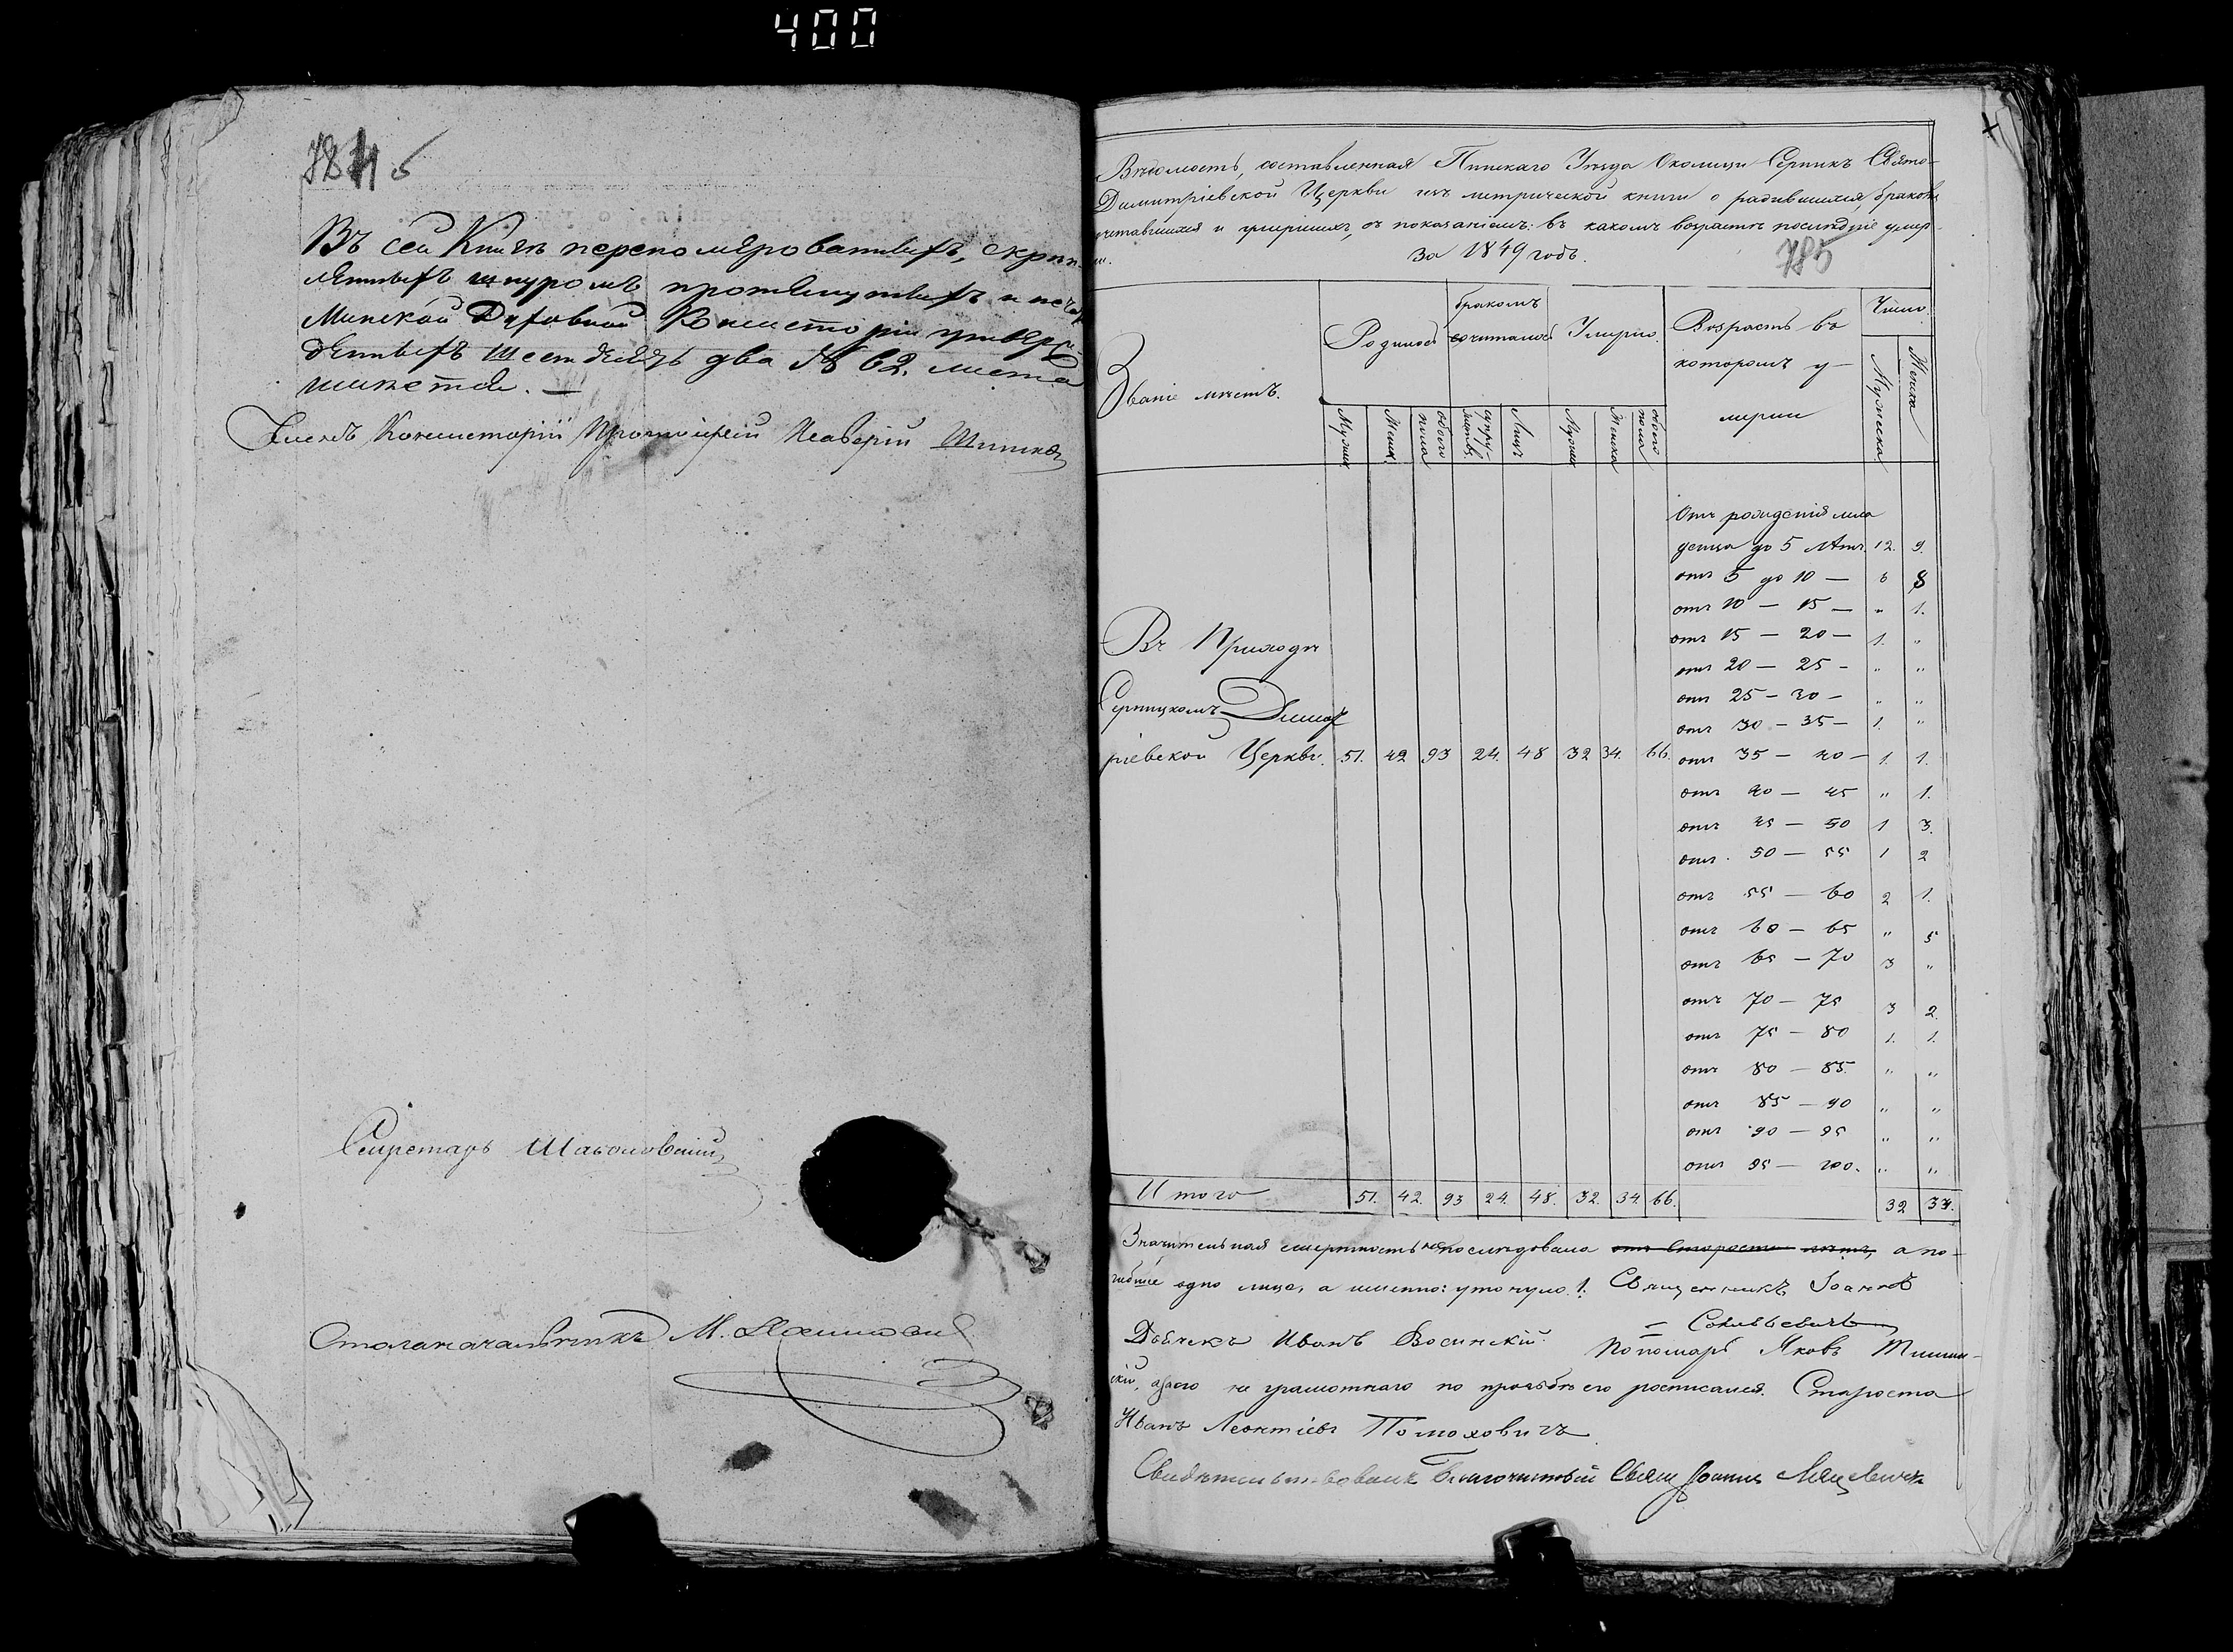 400
784 б
Въ сей Книгѣ переномѣрованныхъ, скрѣп-
ленныхъ шнуромъ протянутыхъ и печат
Минской Духовной Консисторіи утверж-
денныхъ шестьдесятъ два № 62. листа
имѣется. —
Членъ Консисторіи Протоіерей
Секретарь
Столоначальникъ М.
Вѣдомость, составленная Пинскаго Уѣзда Околицы Серникъ Свято-
Димитріевской Церкви изъ метрической книги о родившихся, бракомъ
сочетавшихся и умершихъ, съ показаніемъ: въ какомъ возрастѣ послѣдніе умер-
ли. За 1849 годъ.
785
Званіе мѣстъ.
Родилось
бракомъ сочеталось
Умерло.
Возрастъ въ
которомъ у-
мерли
Число
Мужеска
Женска
Мужск
Женск.
обоего пола
супру-жествъ
Лицъ
Мужск
Женска
обоего пола
Отъ рожденія мла
денца до 5 лѣтъ. 12. 9.
отъ 5 до 10 — 6 8
отъ 10 — 15 — „ 1.
отъ 15 — 20 — 1. „
отъ 20 — 25 - „ „
отъ 25 — 30 - „ „
отъ 30 — 35 — 1. „
Въ Приходѣ
Серницкомъ Димит
ріевской Церкви. 51. 42 93 24. 48 32 34. 66. отъ 35 — 40 — 1. 1.
отъ 40 — 45 „ 1.
отъ 45 — 50 1 3.
отъ 50 — 55 1 2
отъ 55 — 60 2 1.
отъ 60 — 65 „ 5
отъ 65 — 70 3 „
отъ 70 — 75 3 2.
отъ 75 — 80 1. 1.
отъ 80 — 85. „ „
отъ 85 — 90 „ „
отъ 90 — 95 „ „
отъ 95 — 100. „ „
Итого 51. 42. 93 24. 48. 32. 34. 66. 32 34.
Значительная смертность не послѣдовала а по-
гибшіе одно лице, а именно: утонуло 1. Священникъ Іоаннъ
Дьячекъ Иванъ Пономарь Яковъ
не грамотнаго по прозьбѣ его росписался. Староста
Иванъ Леонтіевъ Полюховичъ.
Свидѣтельствовалъ Благочинный Свящ Іоаннъ